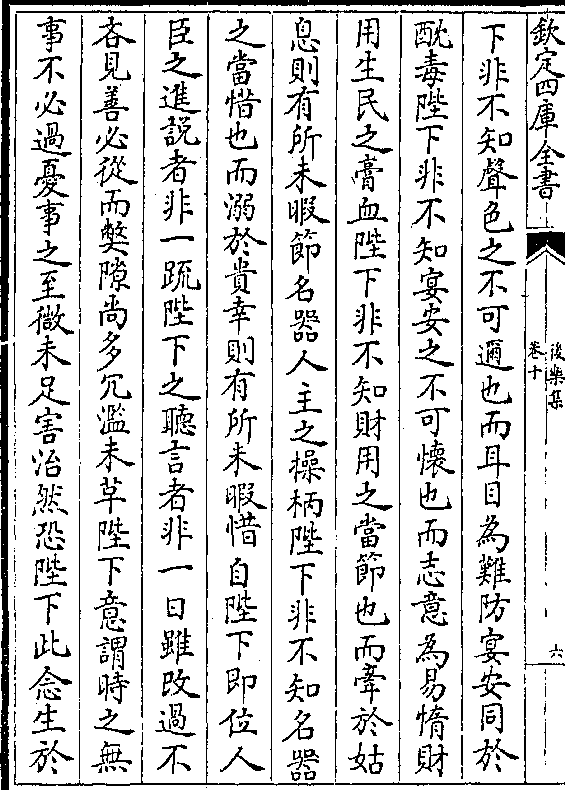 欽定四庫全書
後樂集
卷十
六
下非不知聲色之不可邇也而耳目為難防宴安同於
酖毒陛下非不知宴安之不可懷也而志意為易惰財
用生民之膏血陛下非不知財用之當節也而牽於姑
息則有所未暇節名器人主之操柄陛下非不知名器
之當惜也而溺於貴幸則有所未暇惜自陛下即位人
臣之進說者非一疏陛下之聽言者非一日雖改過不
吝見善必從而獘隙尚多冗濫未草陛下意謂時之無
事不必過憂事之至微未足害治然恐陛下此念生於